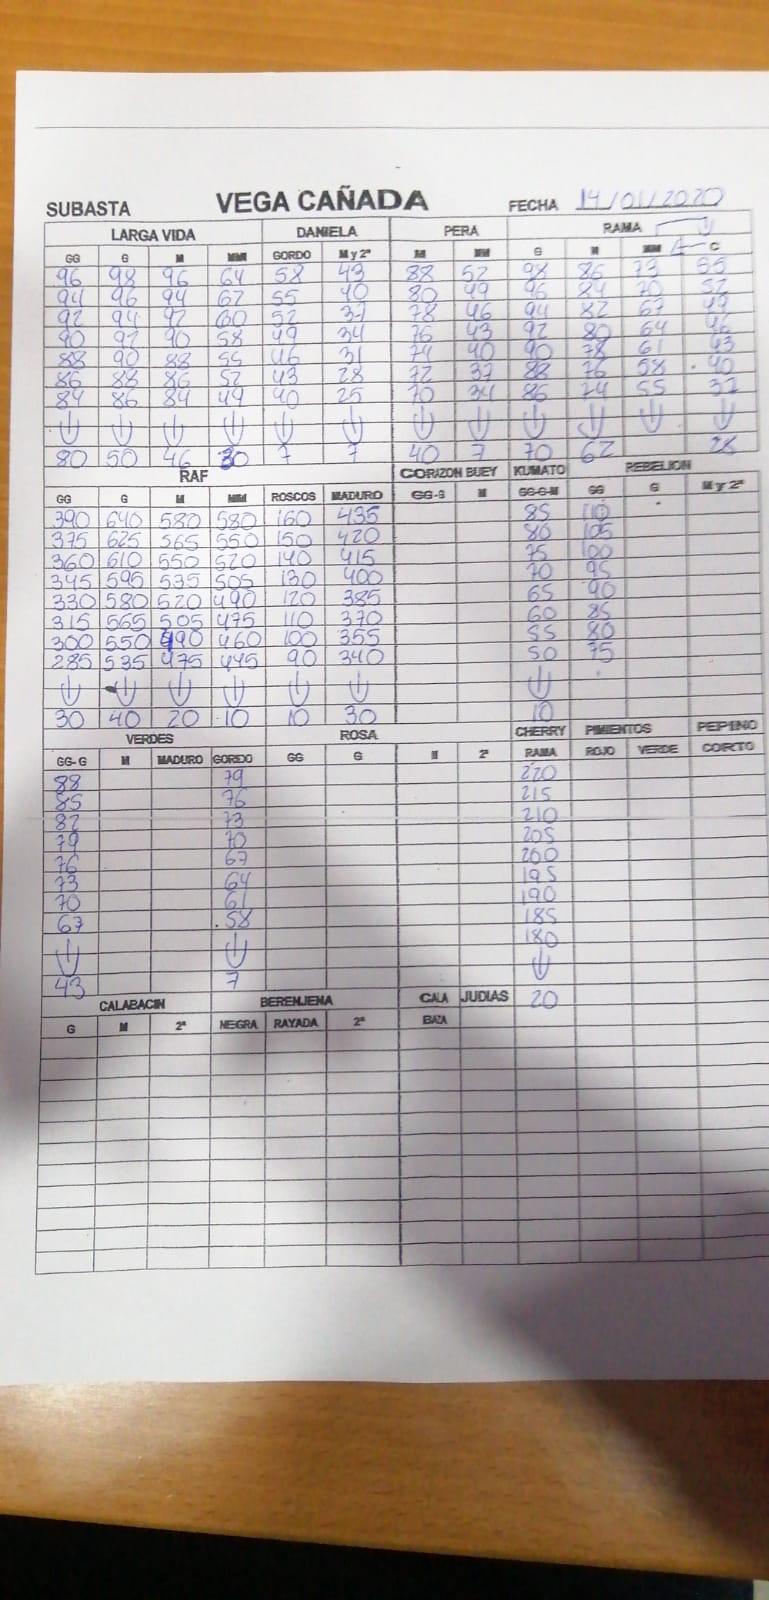 SUBASTA VEGA CAÑADA FECHA 14/01/2020
LARGA VIDA DANIELA PERA RAMA
GG G M MM GORDO M y 2ª M MM G M MM C
96 98 96 64 58 43 88 52 98 86 73 55
94 96 94 62 55 40 80 49 96 84 70 52
92 94 92 60 52 37 78 46 94 82 67 49
90 92 90 58 49 34 76 43 92 80 64 46
88 90 88 55 46 31 74 40 90 78 61 43
86 88 86 52 43 28 72 37 88 76 58 40
84 86 84 49 40 25 70 34 86 74 55 37
80 50 46 30 7 7 40 7 70 62 28
RAF CORAZON BUEY KUMATO REBELION
GG G M MM ROSCOS MADURO GG-G M GG-G-M GG G M y 2ª
390 640 580 580 160 435 85 110
375 625 565 550 150 420 80 105
360 610 550 520 140 415 75 100
345 595 535 505 130 400 70 95
330 580 520 490 120 385 65 90
315 565 505 475 110 370 60 85
300 550 490 460 100 355 55 80
285 535 475 445 90 340 50 75
30 40 20 10 10 30 10
VERDES ROSA CHERRY PIMIENTOS PEPINO
GG-G M MADURO GORDO GG G M 2ª RAMA ROJO VERDE CORTO
88 79 220
85 76 215
82 73 210
79 70 205
76 67 200
73 64 195
70 61 190
67 58 185
180
43 7
CALABACIN BERENJENA CALA JUDIAS 20
G M 2ª NEGRA RAYADA 2ª BAZA